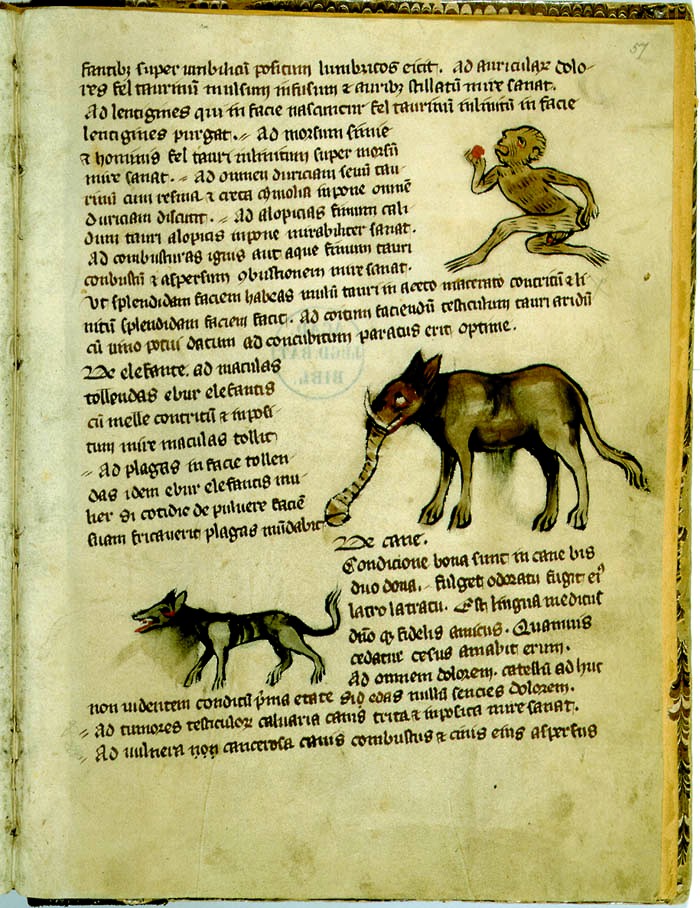 57
fantib; super umbilicū positum lumbricos eicit. Ad auriculare dolo-
res fel taurinū mulsum infusum & aurib; stillatū mire sanat.
Ad lentigines qui in facie nascuntur fel taurinū inlinitū in facie
lentigines purgat. Ad morsum simie
& hominis fel tauri inlinitum super morsū
mire sanat. Ad omnem duriciam seuū tau-
rinū cum resina & creta chimolia inpone omnē
duriciam discutit. Ad alopicias fimum cali
dum tauri alopicis inpone mirabiliter sanat.
Ad combusturas ignis aut aque fimum tauri
conbustū & aspersum 9bustionem mire sanat.
Ut splendidam faciem habeas tauri in aceto macerato contritū & li
nitū splendidam faciem facit. Ad coitum faciendū testiculum tauri aridū
cū uino potui datum ad concubitum paratus erit optime.
De elefante. ad maculas
tollendas ebur elefantis
cū melle contritū & inposi-
tum mire maculas tollit
Ad plagas in facie tollen-
das idem ebur elefantis mu-
lier si cotidie de puluere faciē
suam fricauerit plagas mūdabit.
De cane.
Condicione bona sunt in cane bis
duo dona. fulget odoratu fugit
latro latratu. Est lingua medicus
fidelis amicus. Quamuis
cedatur cesus amabit erum.
Ad omnem dolorem. catellū adhuc
non uidentem conditū p̄ma etate si edas nulla sencies dolorem.
Ad tumores testiculor caluaria canis trita & inposita mire sanat.
Ad uulnera non cancerosa canis combustus & cinis eius aspersus